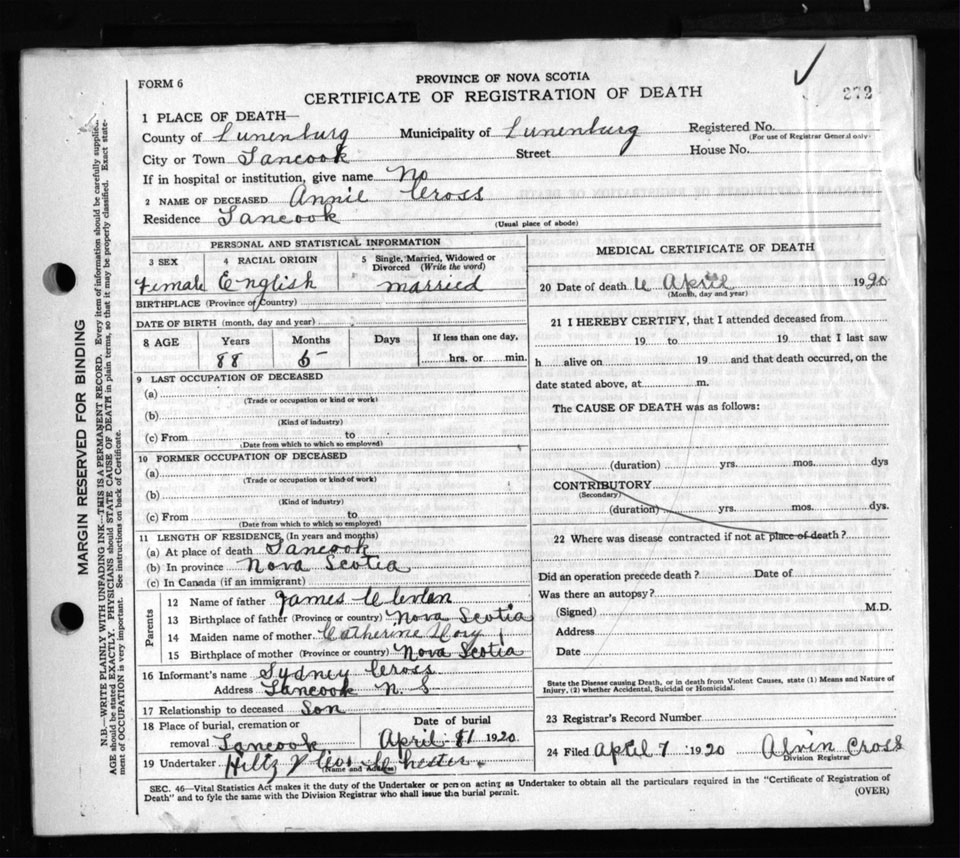 PROVINCE OF NOVA SCOTIA
FORM 6
CERTIFICATE OF REGISTRATION OF DEATH
272
1 PLACE OF DEATH—
County of Lunenburg Municipality of Lunenburg Registered No.
(For use of Registrar General only)
City or Town Tancook Street House No.
If in hospital or institution, give name No
2 NAME OF DECEASED Annie Cross
Residence Tancook
(Usual place of abode)
PERSONAL AND STATISTICAL INFORMATION
3 SEX 4 RACIAL ORIGIN 5 Single, Married, Widowed or Divorced (Write the word)
Female English married
BIRTHPLACE (Province or Country)
DATE OF BIRTH (month, day and year)
8 AGE Years Months Days If less than one day,
88 hrs. or min.
9 LAST OCCUPATION OF DECEASED
(a)
(Trade or occupation or kind or work)
(b)
(Kind of industry)
(c) From to
(Date from which to which so employed)
10 FORMER OCCUPATION OF DECEASED
(a)
(Trade or occupation or kind of work)
(b)
(Kind of industry)
(c) From to
(Date from which to which so employed)
11 LENGTH OF RESIDENCE (In years and months)
(a) At place of death Tancook
(b) In province Nova Scotia
(c) In Canada (if an immigrant)
Parents
12 Name of father James
13 Birthplace of father (Province or country) Nova Scotia
14 Maiden name of mother Catherine
15 Birthplace of mother (Province or country) Nova Scotia
16 Informant's name Sydney Cross
Address Tancook N. S
17 Relationship to deceased Son
18 Place of burial, cremation or removal Tancook
Date of burial
April 8 1920
19 Undertaker Hiltz Chester
(Name and Address)
MEDICAL CERTIFICATE OF DEATH
20 Date of death April 1920
(Month, day and year)
21 I HEREBY CERTIFY, that I attended deceased from
19 to 19 that I last saw
h alive on 19 and that death occurred, on the
date stated above, at m.
The CAUSE OF DEATH was as follows:
(duration) yrs. mos. dys
CONTRIBUTORY
(Secondary)
(duration) yrs. mos. dys.
22 Where was disease contracted if not at place of death?
Did an operation precede death? Date of
Was there an autopsy?
(Signed) M.D.
Address
Date
State the Disease causing Death, or in death from Violent Causes, state (1) Means and Nature of
Injury, (2) whether Accidental, Suicidal or Homicidal.
23 Registrar's Record Number
24 Filed April 7 1920 Alvin Cross
Division Registrar
SEC. 46—Vital Statistics Act makes it the duty of the Undertaker or person acting as Undertaker to obtain all the particulars required in the "Certificate of Registration of
Death" and to fyle the same with the Division Registrar who shall issue the burial permit.
(OVER)
MARGIN RESERVED FOR BINDING
N.B.—WRITE PLAINLY WITH UNFADING INK—THIS IS A PERMANENT RECORD. Every item of information should be carefully supplied.
AGE should be stated EXACTLY. PHYSICIANS should state CAUSE OF DEATH in plain terms, so that it may be properly classified. Exact state-
ment of OCCUPATION is very important. See instructions on back of Certificate.